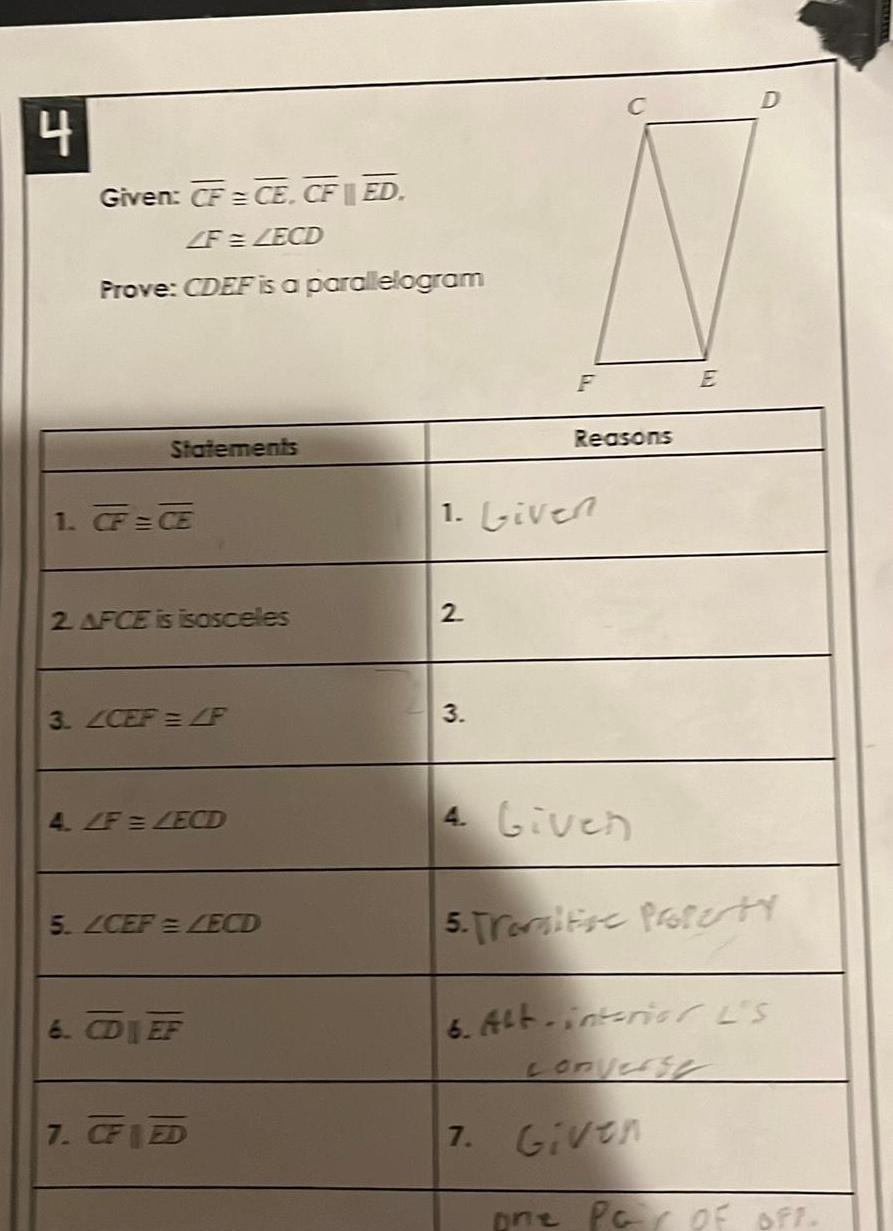 4
C
D
Given: CF ≅ CE, CF ∥ ED,
∠F ≅ ∠ECD
Prove: CDEF is a parallelogram
F
E
Statements
Reasons
1. CF ≅ CE
1. Given
2. △FCE is isosceles
2.
3. ∠CEF ≅ ∠F
3.
4. ∠F ≅ ∠ECD
4. Given
5. ∠CEF ≅ ∠ECD
5. Transitive Property
6. CD ∥ EF
6. Alt. interior L's
converse
7. CF ∥ ED
7. Given
one Pair OF opp.